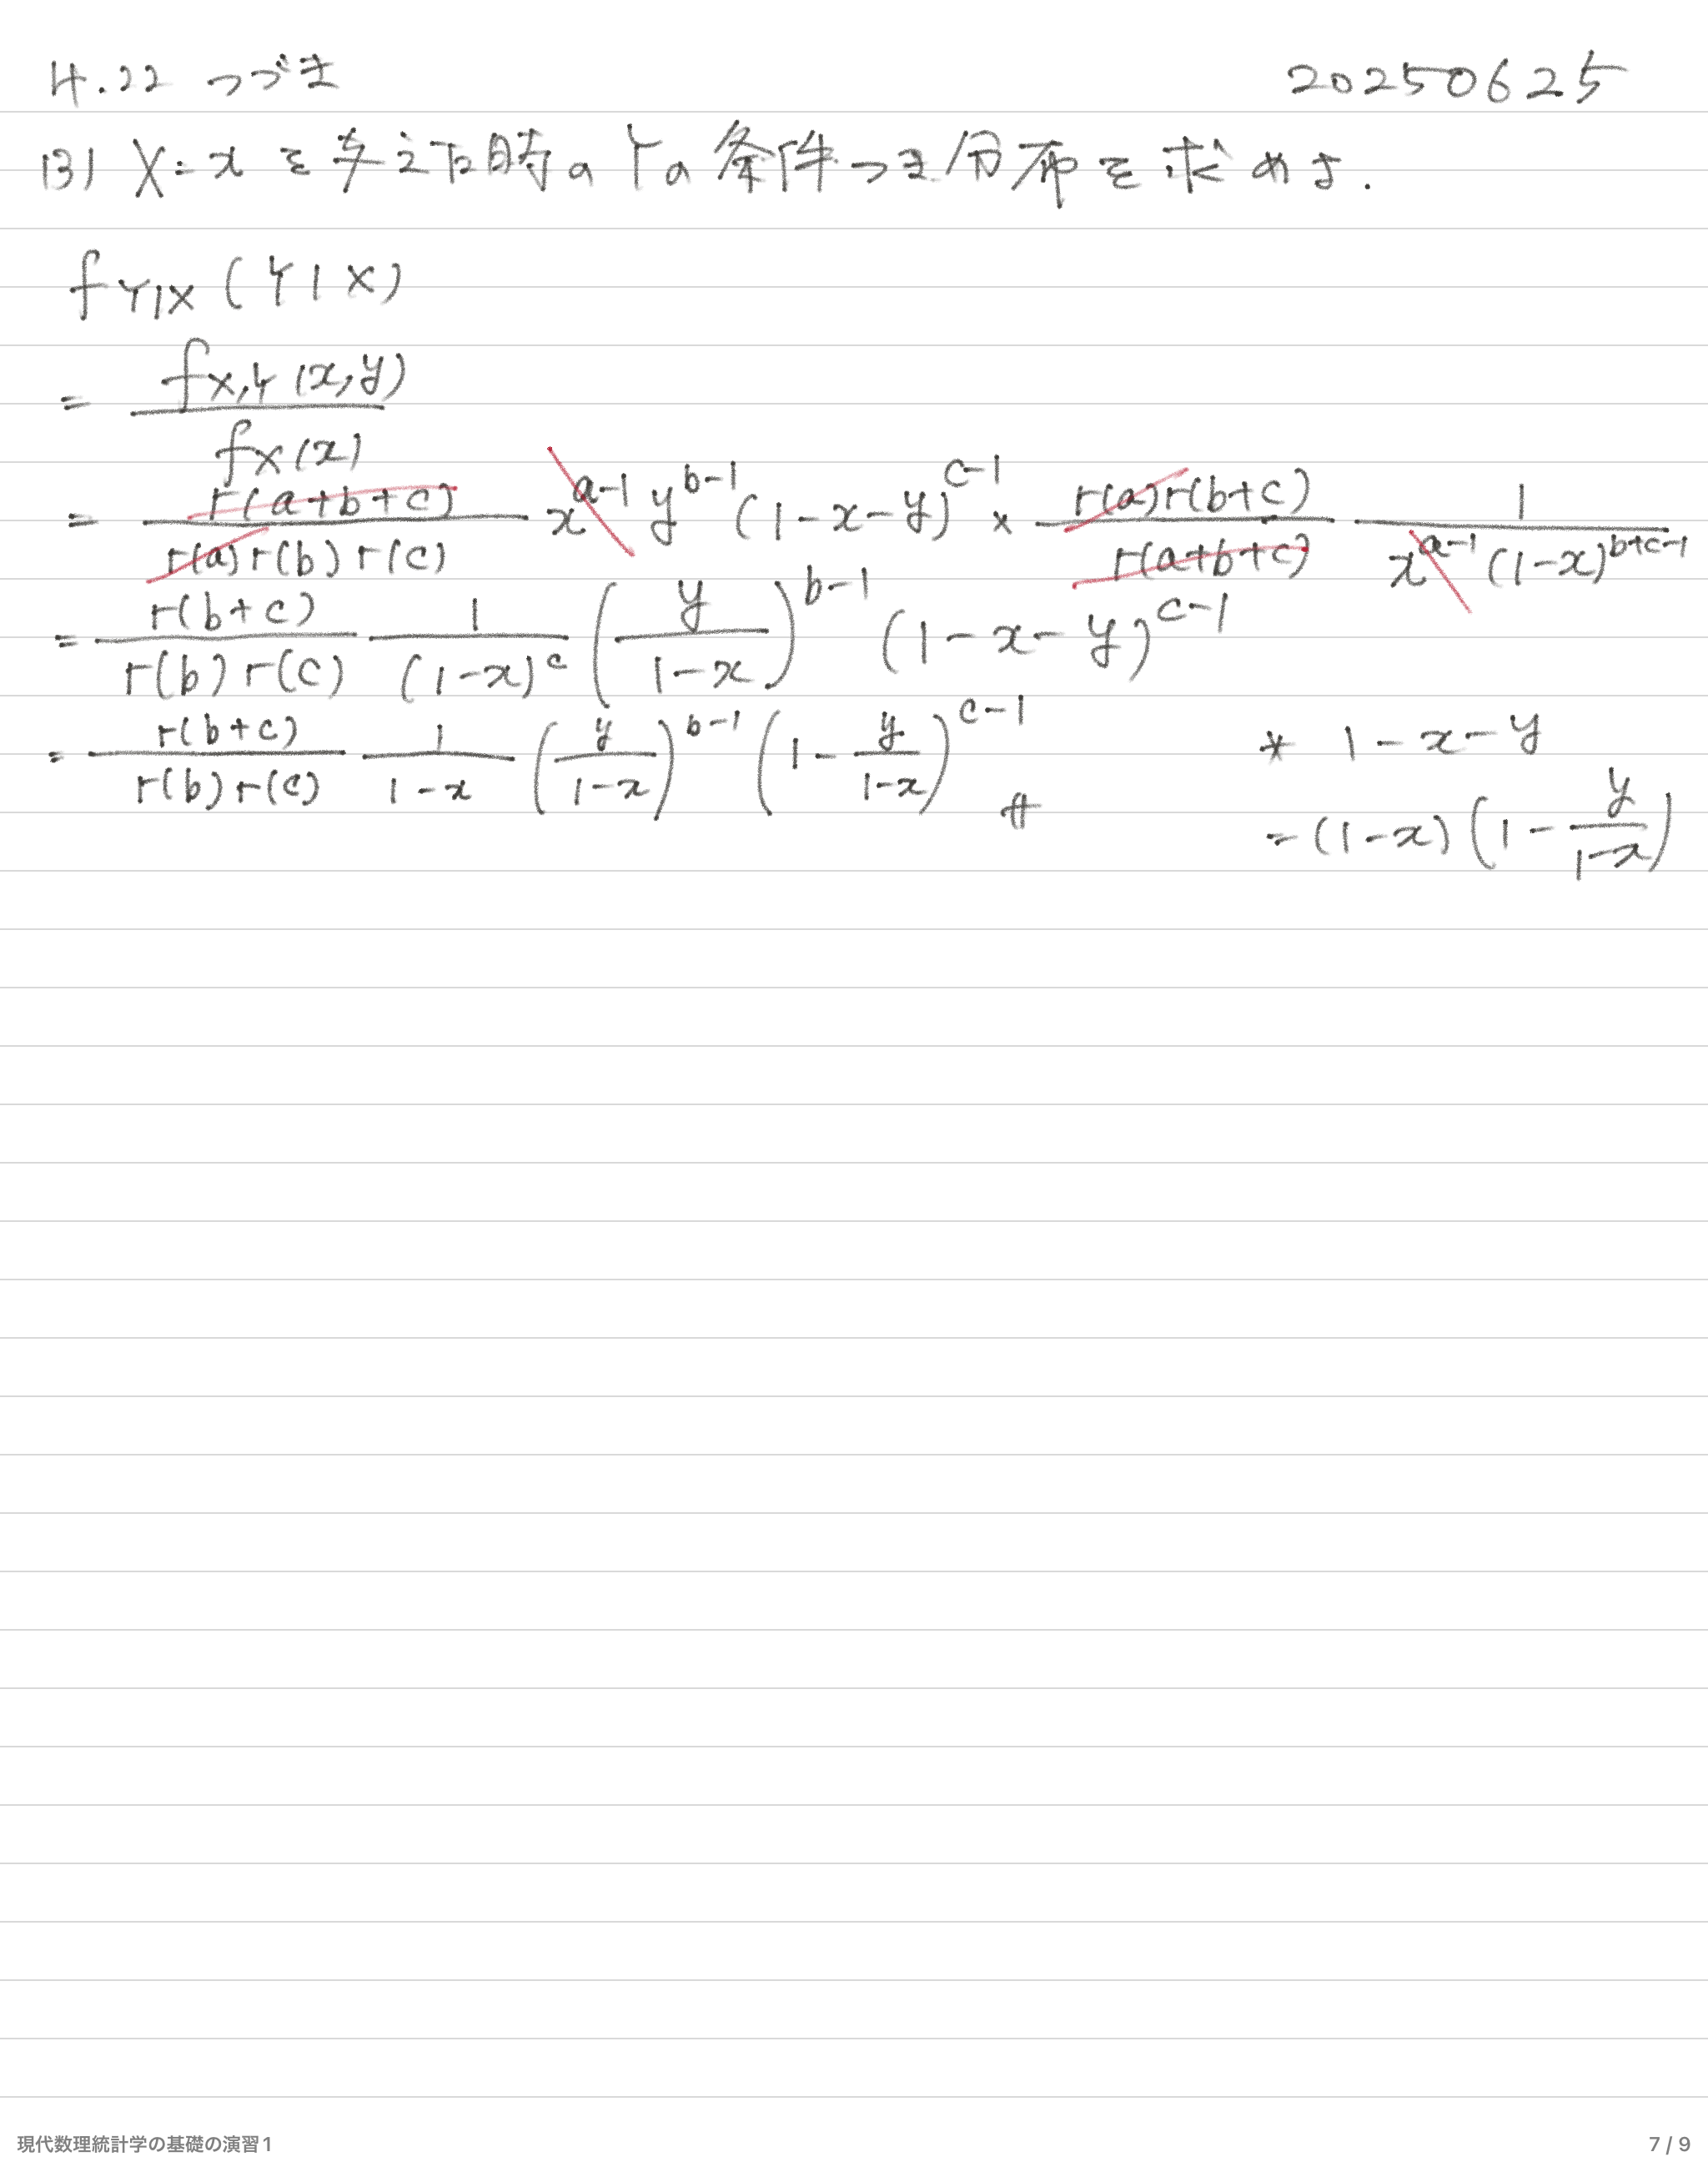 4.22 つづき 20250625
(3) X=x を与えた時のYの条件つき分布を求めよ.
fY|X (Y|X)
= fX,Y (x,y) / fX(x)
= Γ(a+b+c) / Γ(a)Γ(b)Γ(c) x^{a-1} y^{b-1} (1-x-y)^{c-1} × Γ(a)Γ(b+c) / Γ(a+b+c) 1 / x^{a-1}(1-x)^{b+c-1}
= Γ(b+c) / Γ(b)Γ(c) 1 / (1-x)^c (y / 1-x)^{b-1} (1-x-y)^{c-1}
= Γ(b+c) / Γ(b)Γ(c) 1 / 1-x (y / 1-x)^{b-1} (1 - y / 1-x)^{c-1} #
* 1-x-y
= (1-x)(1 - y / 1-x)
現代数理統計学の基礎の演習1 7 / 9